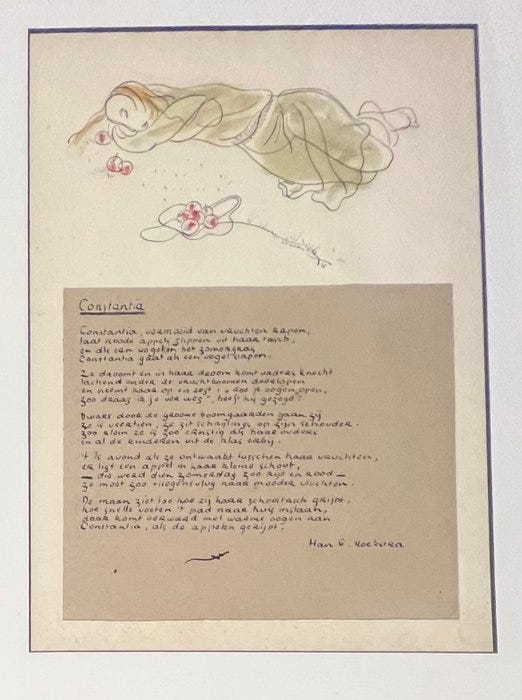 Constantia
Constantia, vermoeid van vruchten rapen,
laat roode appels slippen uit haar tasch,
en als een vogel in het zomergras
Constantia gaat als een vogel slapen.
Ze droomt en in haar droom komt vaders knecht
lachend onder de vruchtboomen doorloopen
en neemt haar op en zegt: "doe je oogen open,
zoo draag ik je ver weg", heeft hij gezegd.
Dwars door de groene boomgaarden gaan zij
ze is veertien, ze zit schrijlings op zijn schouder.
zoo klein ze is zoo ernstig als haar ouders
en al de kinderen uit de klas erbij.
't Is avond als ze ontwaakt tusschen haar vruchten,
er ligt een appel in haar kleine schoot,
— die werd dien zomerdag zoo rijp en rood —
ze moet zoo vliegensvlug naar moeder vluchten.
De maan ziet toe hoe zij haar schooltasch grijpt,
hoe snelle voeten 't pad naar huis inslaan,
daar komt verward met warme oogen aan
Constantia, als de appelen gerijpt.
Han G. Hoekstra